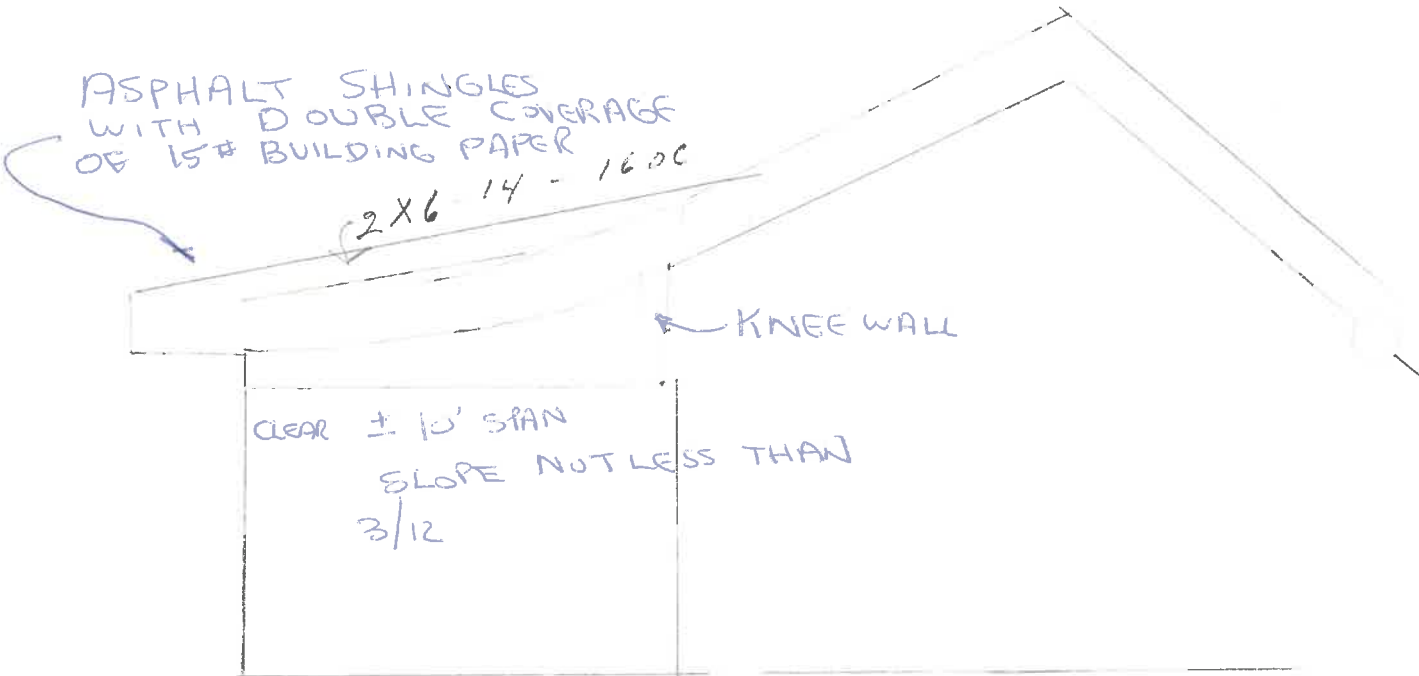 ASPHALT SHINGLES
WITH DOUBLE COVERAGE
OF 15# BUILDING PAPER
2X6 14 - 16 OC
KNEE WALL
CLEAR ± 10' SPAN
SLOPE NOT LESS THAN
3/12